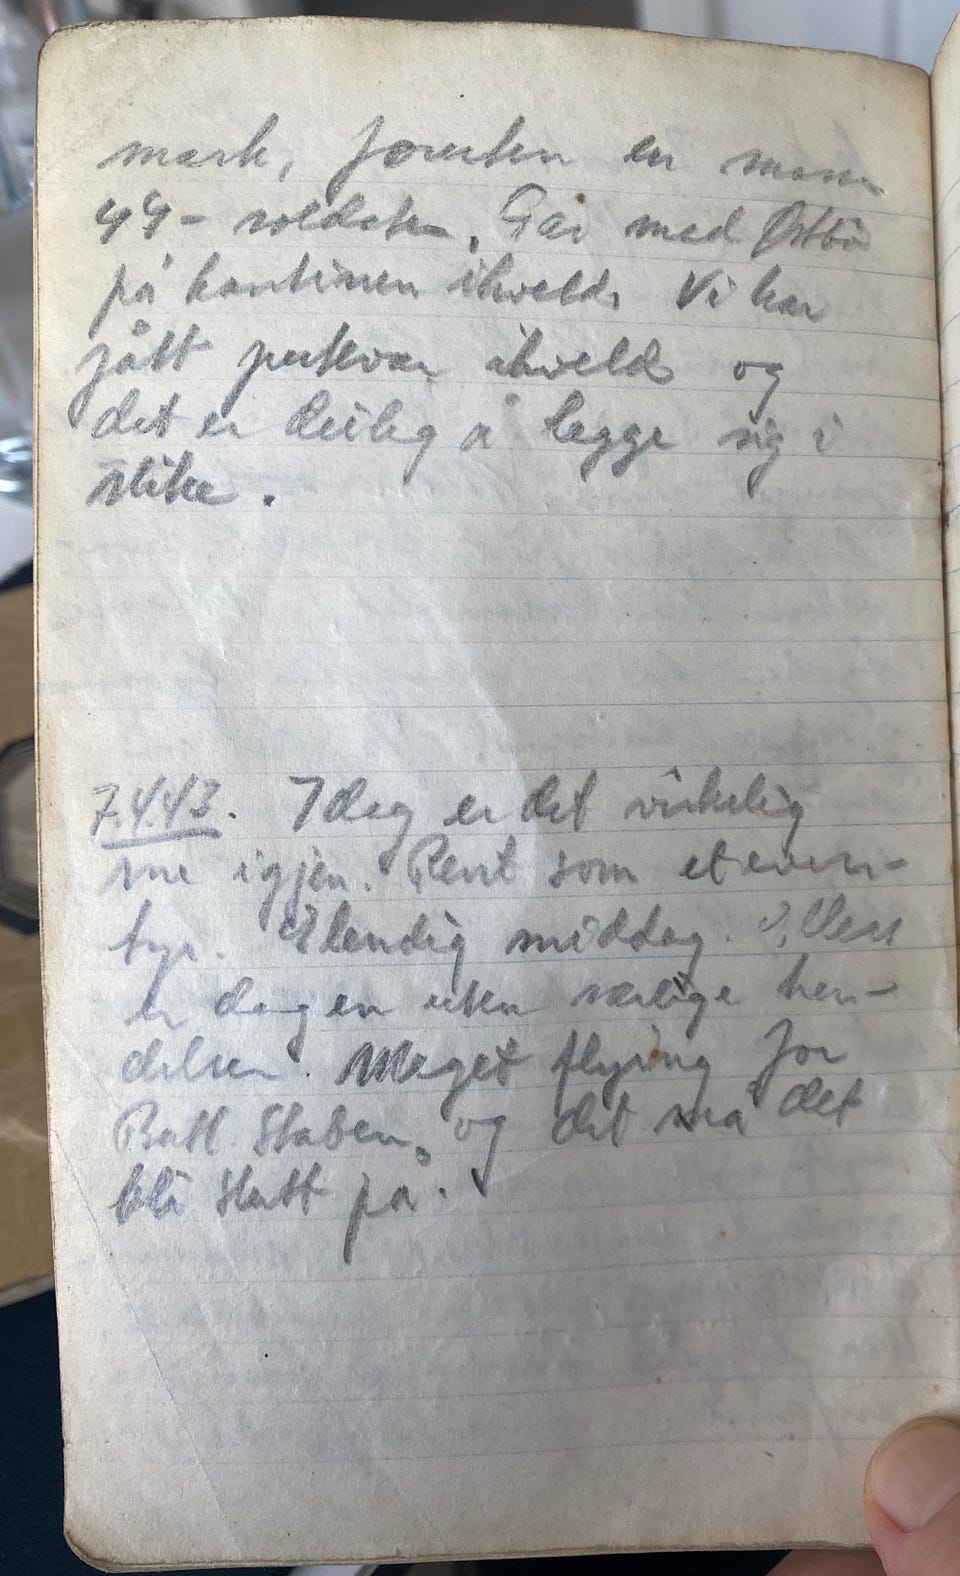 mark, foruten en masse
44-soldater. Går med Østbö
på kantinen ikveld. Vi har
fått putevar ikveld og
det er deilig å legge sig i
slike.
7.4.43. Idag er det virkelig
sne igjen. Rent som et even-
tyr. Elendig middag. Ellers
er dagen uten særlige hen-
delser. Meget flying for
Batl. Staben, og det må det
bli slutt på.